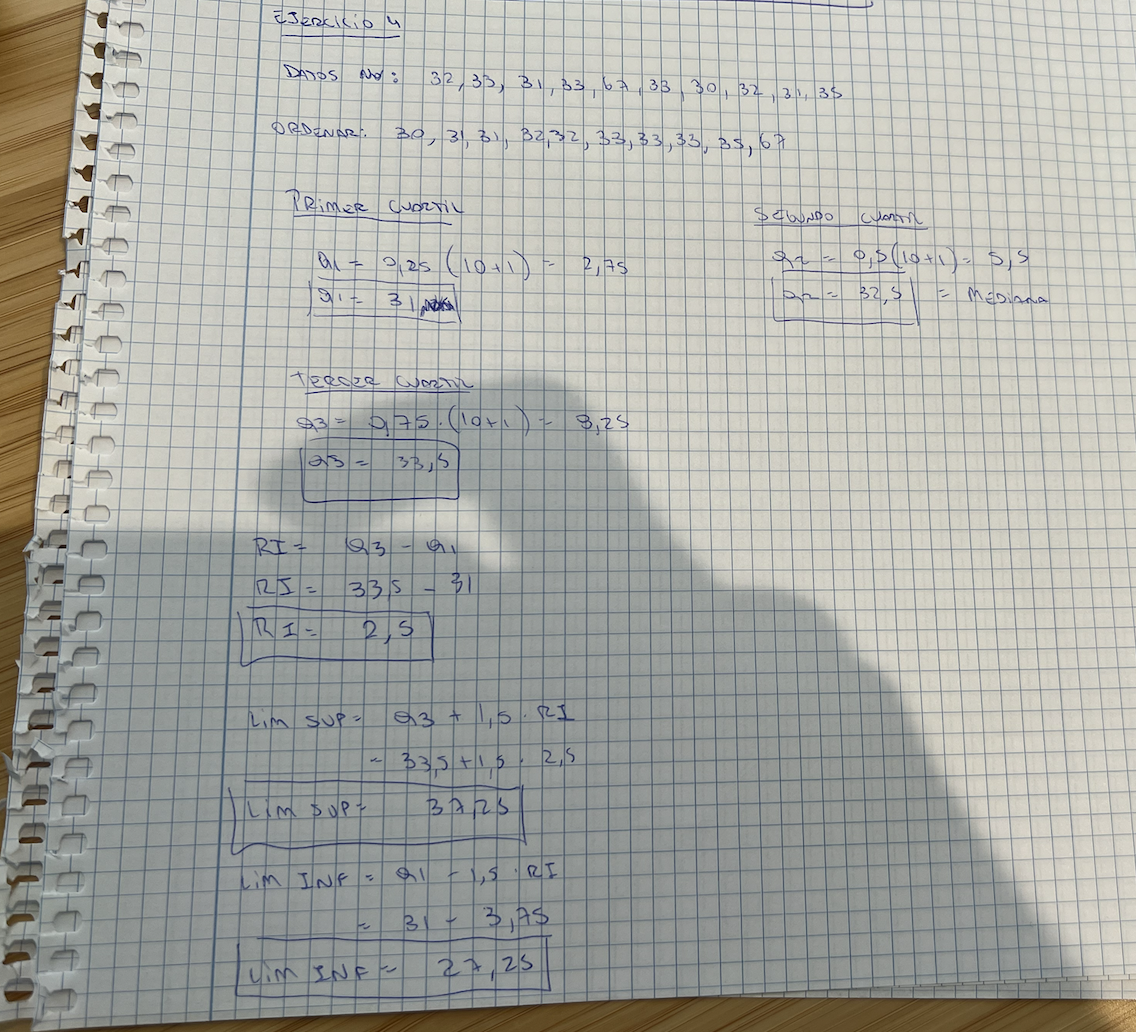 EJERCICIO 4
DATOS Nº: 32, 33, 31, 33, 67, 33, 30, 32, 31, 35
ORDENAR: 30, 31, 31, 32, 32, 33, 33, 33, 35, 67
PRIMER CUARTIL
Q1 = 0,25 (10+1) = 2,75
Q1 = 31
SEGUNDO CUARTIL
Q2 = 0,5(10+1) = 5,5
Q2 = 32,5 = MEDIANA
TERCER CUARTIL
Q3 = 0,75 · (10+1) = 8,25
Q3 = 33,5
RI = Q3 - Q1
RI = 33,5 - 31
RI = 2,5
Lim SUP = Q3 + 1,5 · RI
= 33,5 + 1,5 · 2,5
Lim SUP = 37,25
Lim INF = Q1 - 1,5 · RI
= 31 - 3,75
Lim INF = 27,25